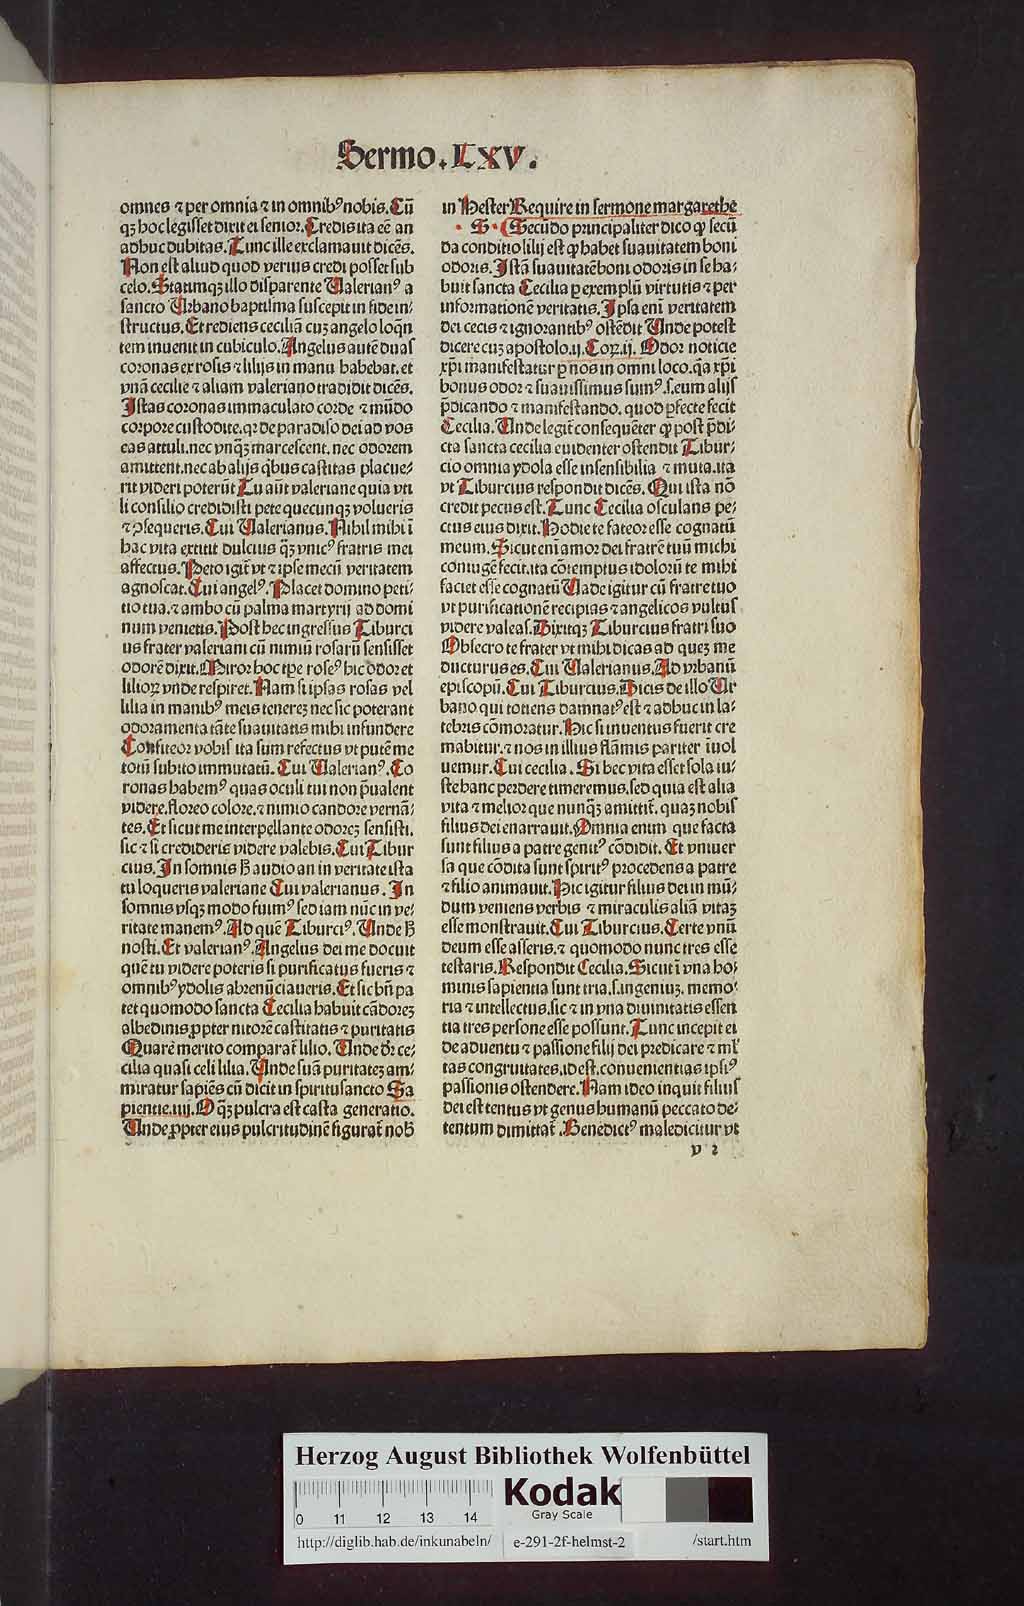 Sermo. LXV.
omnes ⁊ per omnia ⁊ in omnibꝰ nobis. Cū
qꝫ hoc legisset dixit ei senior. Credis ita eē an
adhuc dubitas. Tunc ille exclamauit dicēs.
Non est aliud quod verius credi posset sub
celo. Statimqꝫ illo disparente Valerianꝰ a
sancto Urbano baptisma suscepit in fide in⸗
structus. Et rediens ceciliā cuꝫ angelo loq̄n
tem inuenit in cubiculo. Angelus autē duas
coronas ex rosis ⁊ lilijs in manu habebat. et
vnā cecilie ⁊ aliam valeriano tradidit dicēs.
Istas coronas immaculato corde ⁊ mūdo
corpore custodite. qꝛ de paradiso dei ad vos
eas attuli. nec vnqꝫ marcescent. nec odorem
amittent. nec ab alijs q̇bus castitas placue⸗
rit videri poterūt Tu aūt valeriane quia vti
li consilio credidisti pete quecunqꝫ volueris
⁊ ꝯsequeris. Cui Valerianus. Nihil mihi ī
hac vita extitit dulcius qꝫ vnicꝰ fratris mei
affectus. Peto igiť vt ⁊ ipse mecū veritatem
agnoscat. Cui angelꝰ. Placet domino peti⸗
tio tua. ⁊ ambo cū palma martyrij ad domi
num venietis. Post hec ingressus Tiburci
us frater valeriani cū nimiū rosarū sensisset
odorē dixit. Miror hoc tꝑe roseꝰ hic odor et
lilioꝝ vnde respiret. Nam si ipsas rosas vel
lilia in manibꝰ meis tenereꝫ nec sic poterant
odoramenta tāte suauitatis mihi infundere
Confiteor vobis ita sum refectus vt putē me
totū subito immutatū. Cui Valerianꝰ. Co
ronas habemꝰ quas oculi tui non p̄ualent
videre. floreo colore. ⁊ nimio candore vernā⸗
tes. Et sicut me interpellante odoreꝫ sensisti.
sic ⁊ si credideris videre valebis. Cui Tibur
cius. In somnis ꝧ audio an in veritate ista
tu loqueris valeriane Cui valerianus. In
somnis vsqꝫ modo fuimꝰ sed iam nūc in ve⸗
ritate manemꝰ. Ad quē Tiburciꝰ. Unde ꝧ
nosti. Et valerianꝰ. Angelus dei me docuit
quē tu videre poteris si purificatus fueris ⁊
omnibꝰ ydolis abrenūciaueris. Et sic bn̄ pa
tet quomodo sancta Cecilia habuit cādoreꝫ
albedinis ꝓpter nitorē castitatis ⁊ puritatis
Quare merito comparať lilio. Unde dr̄ ce⸗
cilia quasi celi lilia. Unde suā puritateꝫ am⸗
miratur sapiēs cū dicit in spiritusancto Sa
pientie. iiij. O qꝫ pulcra est casta generatio.
Unde ꝓpter eius pulcritudinē figurať nobꝭ
in Hester Require in sermone margarethe
S. Secūdo principaliter dico ꝙ secū
da conditio lilij est ꝙ habet suauitatem boni
odoris. Istā suauitatē boni odoris in se ha⸗
buit sancta Cecilia ꝑ exemplū virtutis ⁊ per
informationē veritatis. Ipsa enī veritatem
dei cecis ⁊ ignorantibꝰ ostēdit Unde potest
dicere cuꝫ apostolo. ij. Coꝝ. ij. Odor noticie
xp̄i manifestatur ꝑ nos in omni loco. qa xp̄i
bonus odor ⁊ suauissimus sumꝰ. s. eum alijs
p̄dicando ⁊ manifestando. quod ꝑfecte fecit
Cecilia. Unde legiť consequēter ꝙ post p̄di⸗
cta sancta cecilia euidenter ostendit Tibur⸗
cio omnia ydola esse insensibilia ⁊ muta. ita
vt Tiburcius respondit dicēs. Qui ista nō
credit pecus est. Tunc Cecilia osculans pe⸗
ctus eius dixit. Hodie te fateor esse cognatū
meum. Sicut enī amor dei fratrē tuū michi
coniugē fecit. ita cōtemptus idolorū te mihi
faciet esse cognatū Uade igitur cū fratre tuo
vt purificationē recipias ⁊ angelicos vultus
videre valeas. Dixitqꝫ Tiburcius fratri suo
Obsecro te frater vt mihi dicas ad queꝫ me
ducturus es. Cui Valerianus. Ad vrbanū
episcopū. Cui Tiburcius. Dicis de illo Ur
bano qui totiens damnatꝰ est ⁊ adhuc in la⸗
tebris cōmoratur. Hic si inuentus fuerit cre
mabitur. ⁊ nos in illius flāmis pariter īuol
uemur. Cui cecilia. Si hec vita esset sola iu⸗
ste hanc perdere timeremus. sed quia est alia
vita ⁊ melior que nunqꝫ amittiť. quaꝫ nobis
filius dei enarrauit. Omnia enim que facta
sunt filius a patre genitꝰ cōdidit. Et vniuer
sa que cōdita sunt spiritꝰ procedens a patre
⁊ filio animauit. Hic igitur filius dei in mū⸗
dum veniens verbis ⁊ miraculis aliā vitaꝫ
esse monstrauit. Cui Tiburcius. Certe vnū
deum esse asseris. ⁊ quomodo nunc tres esse
testaris. Respondit Cecilia. Sicut ī vna ho⸗
minis sapientia sunt tria. s. ingeniuꝫ. memo⸗
ria ⁊ intellectus. sic ⁊ in vna diuinitatis essen
tia tres persone esse possunt. Tunc incepit ei
de aduentu ⁊ passione filij dei predicare ⁊ ml̄
tas congruitates. id est. conuenientias ipsiꝰ
passionis ostendere. Nam ideo inquit filius
dei est tentus vt genus humanū peccato de⸗
tentum dimittať. Benedictꝰ maledicitur vt
v 2
Herzog August Bibliothek Wolfenbüttel
0 11 12 13 14
Kodak
Gray Scale
http://diglib.hab.de/inkunabeln/ e-291-2f-helmst-2 /start.htm